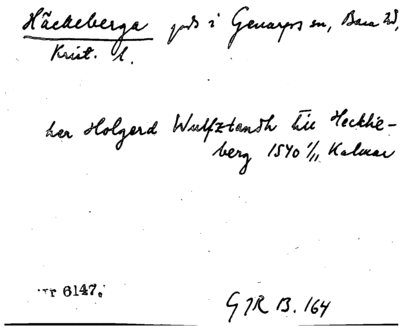 Häckeberga gods i Genarps sn, Bara hd,
Krist. l.
her Holgerd Wulfztandh tiil Heckhe-
berg 1540 1/11 Kalmar
6147.
GIR B. 164